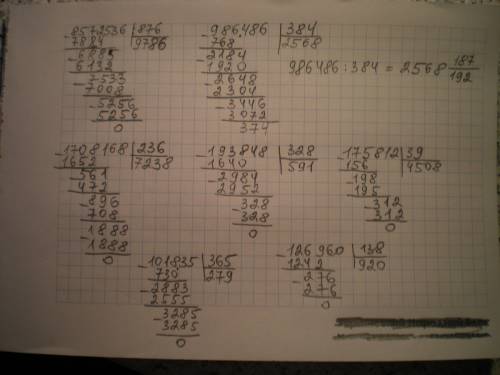 -8572536 |876
7884 |9786
-6885
6132
-7533
7008
-5256
5256
0
-986486 |384
768 |2568
-2184
1920
-2648
2304
-3446
3072
374
986486 : 384 = 2568 187/192
-1708168 |236
1652 |7238
-561
472
-896
708
-1888
1888
0
-193848 |328
1640 |591
-2984
2952
-328
328
0
-175812 |39
156 |4508
-198
195
-312
312
0
-101835 |365
730 |279
-2883
2555
-3285
3285
0
-126960 |138
1242 |920
-276
276
0